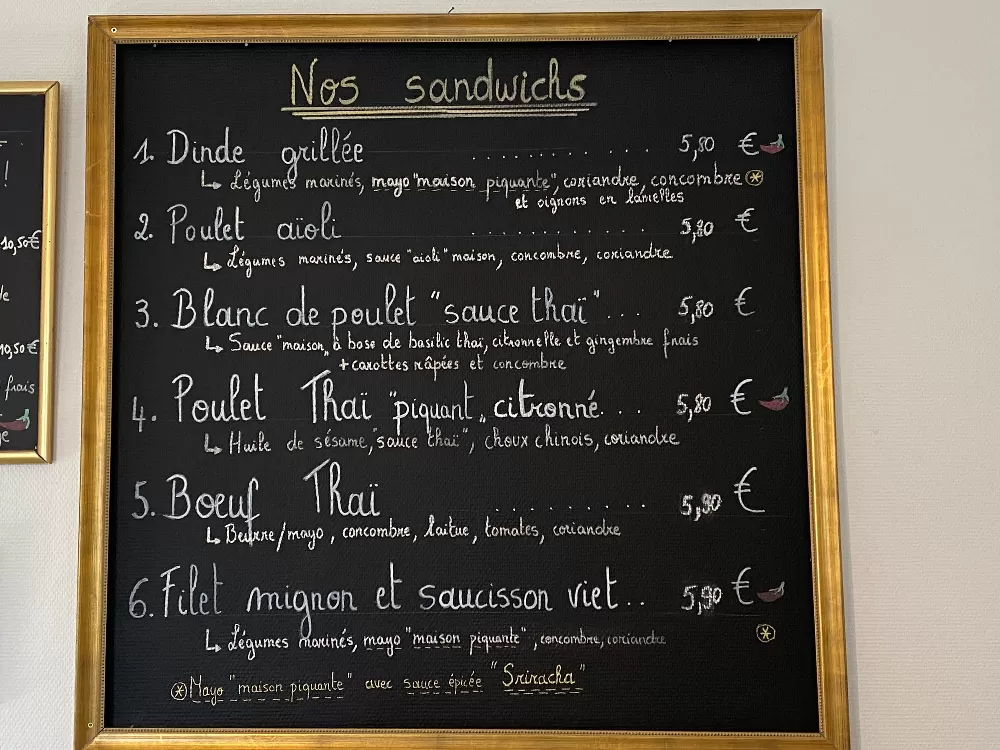 Nos sandwichs
1. Dinde grillée . . . . . . . . . . . 5,80 €
↳ Légumes marinés, mayo "maison piquante", coriandre, concombre ⊛
et oignons en lamelles
2. Poulet aïoli . . . . . . . . . . . 5,80 €
↳ Légumes marinés, sauce "aïoli" maison, concombre, coriandre
3. Blanc de poulet "sauce thaï" . . . 5,80 €
↳ Sauce "maison" à base de basilic thaï, citronnelle et gingembre frais
+ carottes râpées et concombre
4. Poulet Thaï "piquant" citronné . . . 5,80 €
↳ Huile de sésame, "sauce thaï", choux chinois, coriandre
5. Bœuf Thaï . . . . . . . . . . 5,90 €
↳ Beurre/mayo, concombre, laitue, tomates, coriandre
6. Filet mignon et saucisson viet . . 5,90 €
↳ Légumes marinés, mayo "maison piquante", concombre, coriandre ⊛
⊛ Mayo "maison piquante" avec sauce épicée "Sriracha"
!
10,50€
10,50€
frais